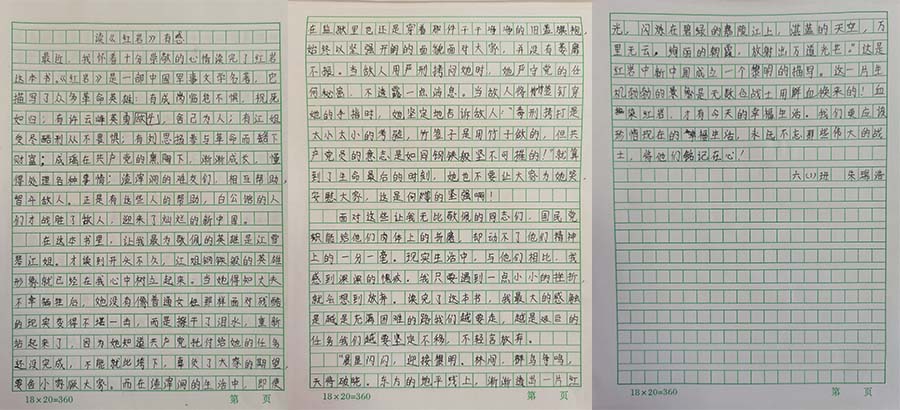 读《红岩》有感
最近，我怀着十分崇敬的心情读完了红岩
这本书。《红岩》是一部中国军事文学名著，它
描写了众多革命英雄：有成岗临危不惧，视死
如归；有许云峰英勇，舍己为人；有江姐
受尽酷刑从不畏惧；有刘思扬参与革命而
财富；成瑶在共产党的熏陶下，渐渐成长，懂
得处理各种事情；渣滓洞的难友们，相互帮助，
智斗敌人。正是有这些人的帮助，白公馆的人
们才战胜了敌人，迎来了灿烂的新中国。
在这本书里，让我最为敬佩的英雄是江雪
琴江姐。才读到开头不久，江姐钢铁般的英雄
形象就已经在我心中树立起来。当她得知丈夫
不幸牺牲后，她没有像普通女性那样面对残酷
的现实变得不堪一击，而是擦干了泪水，重新
站起来了，因为她知道共产党托付给她的任务
还没完成，不能就此垮下，辜负了大家的期望
要舍小家顾大家。而在渣滓洞的生活中，即使
在监狱里也还是穿着那件干干净净的旧蓝旗袍，
始终以坚强开朗的面貌面对大家，并没有萎靡
不振。当敌人用严刑拷问她时，她严守党的任
何秘密，不透露一点消息。当敌人将竹签钉穿
她的手指时，她坚定地告诉敌人：“毒刑拷打是
太小太小的考验，竹签子是用竹子做的，但共
产党员的意志是如同钢铁般坚不可摧的！”就算
到了生命最后的时刻，她也不要让大家为她哭，
安慰大家，这是何等的坚强啊！
面对这些让我无比敬佩的同志们，国民党
只能给他们肉体上的折磨，却动不了他们精神
上的一分一毫。现实生活中，与他们相比，我
感到深深的愧疚。我只要遇到一点小小的挫折
就会想到放弃。读完了这本书，我最大的感触
是越是充满困难的路我们越要走，越是艰巨的
任务我们越要坚定不移，不轻言放弃。
“晨星闪闪，迎接黎明。林间，群鸟争鸣，
天将破晓。东方的地平线上，渐渐透出一片红
光，闪烁在碧绿的嘉陵江上，湛蓝的天空，万
里无云。绚丽的朝霞，放射出万道光芒。”这是
红岩中新中国成立一个黎明的描写。这一片生
机勃勃的是无数烈士用鲜血换来的！血
染红岩，才有今天的幸福生活。我们更应该
珍惜现在的幸福生活，永远不忘那些伟大的战
士，将他们铭记在心！
六（1）班 朱瑞浩
18×20=360 第 页
18×20=360 第 页
18×20=360 第 页